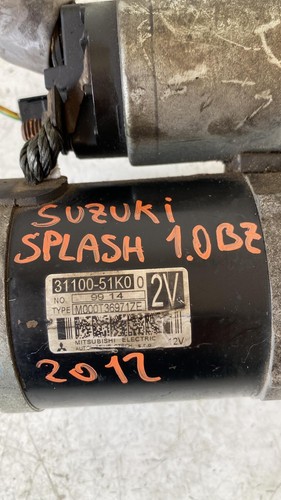 SUZUKI
SPLASH 1.0BZ
31100-51K0 0 2V
NO. 9914
TYPE M000T38971ZE
MITSUBISHI ELECTRIC
12V
2012